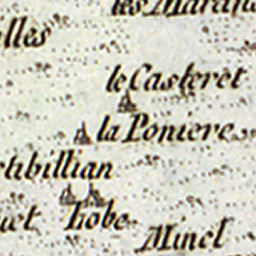 les Maran
elles
le Casteret
la Poniere
tibillian
uet hobe
Minel